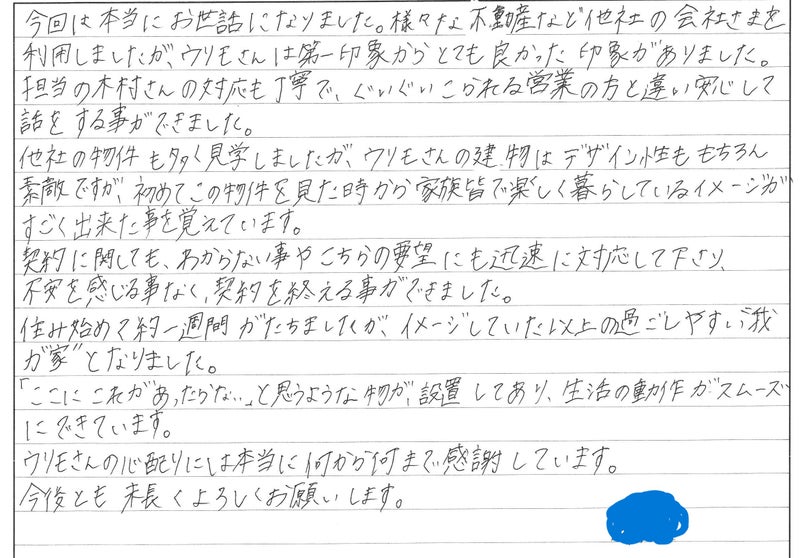 今回は本当にお世話になりました。様々な不動産など他社の会社さまを
利用しましたが、ウリモさんは第一印象からとても良かった印象がありました。
担当の木村さんの対応も丁寧で、ぐいぐいこられる営業の方と違い安心して
話をする事ができました。
他社の物件も多く見学しましたが、ウリモさんの建物はデザイン性ももちろん
素敵ですが、初めてこの物件を見た時から家族皆で楽しく暮らしているイメージが
すごく出来た事を覚えています。
契約に関しても、わからない事やこちらの要望にも迅速に対応して下さり、
不安を感じる事なく、契約を終える事ができました。
住み始めて約一週間がたちましたが、イメージしていた以上の過ごしやすい“我
が家”となりました。
「ここにこれがあったらな…」と思うような物が、設置してあり、生活の動作がスムーズ
にできています。
ウリモさんの心配りには本当に何から何まで感謝しています。
今後とも末長くよろしくお願いします。